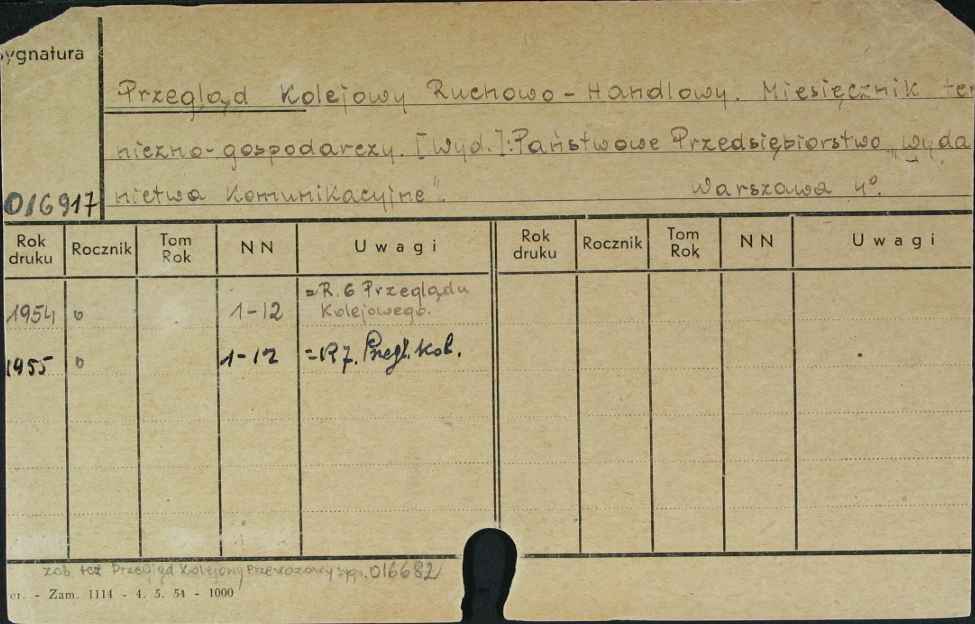 ygnatura
Przegląd Kolejowy Ruchowo-Handlowy. Miesięcznik tech
niczno-gospodarczy. [Wyd.]: Państwowe Przedsiębiorstwo „Wyda
016917 nictwa Komunikacyjne". Warszawa 4°.
Rok druku Rocznik Tom Rok NN Uwagi Rok druku Rocznik Tom Rok NN Uwagi
1954 0 1-12 =R. 6 Przeglądu
Kolejowego.
1955 0 1-12 =R 7. Przegl. Kol.
zob. też Przegląd Kolejowy Przewozowy sygn. 016682
er. - Zam. 1114 - 4. 5. 54 - 1000